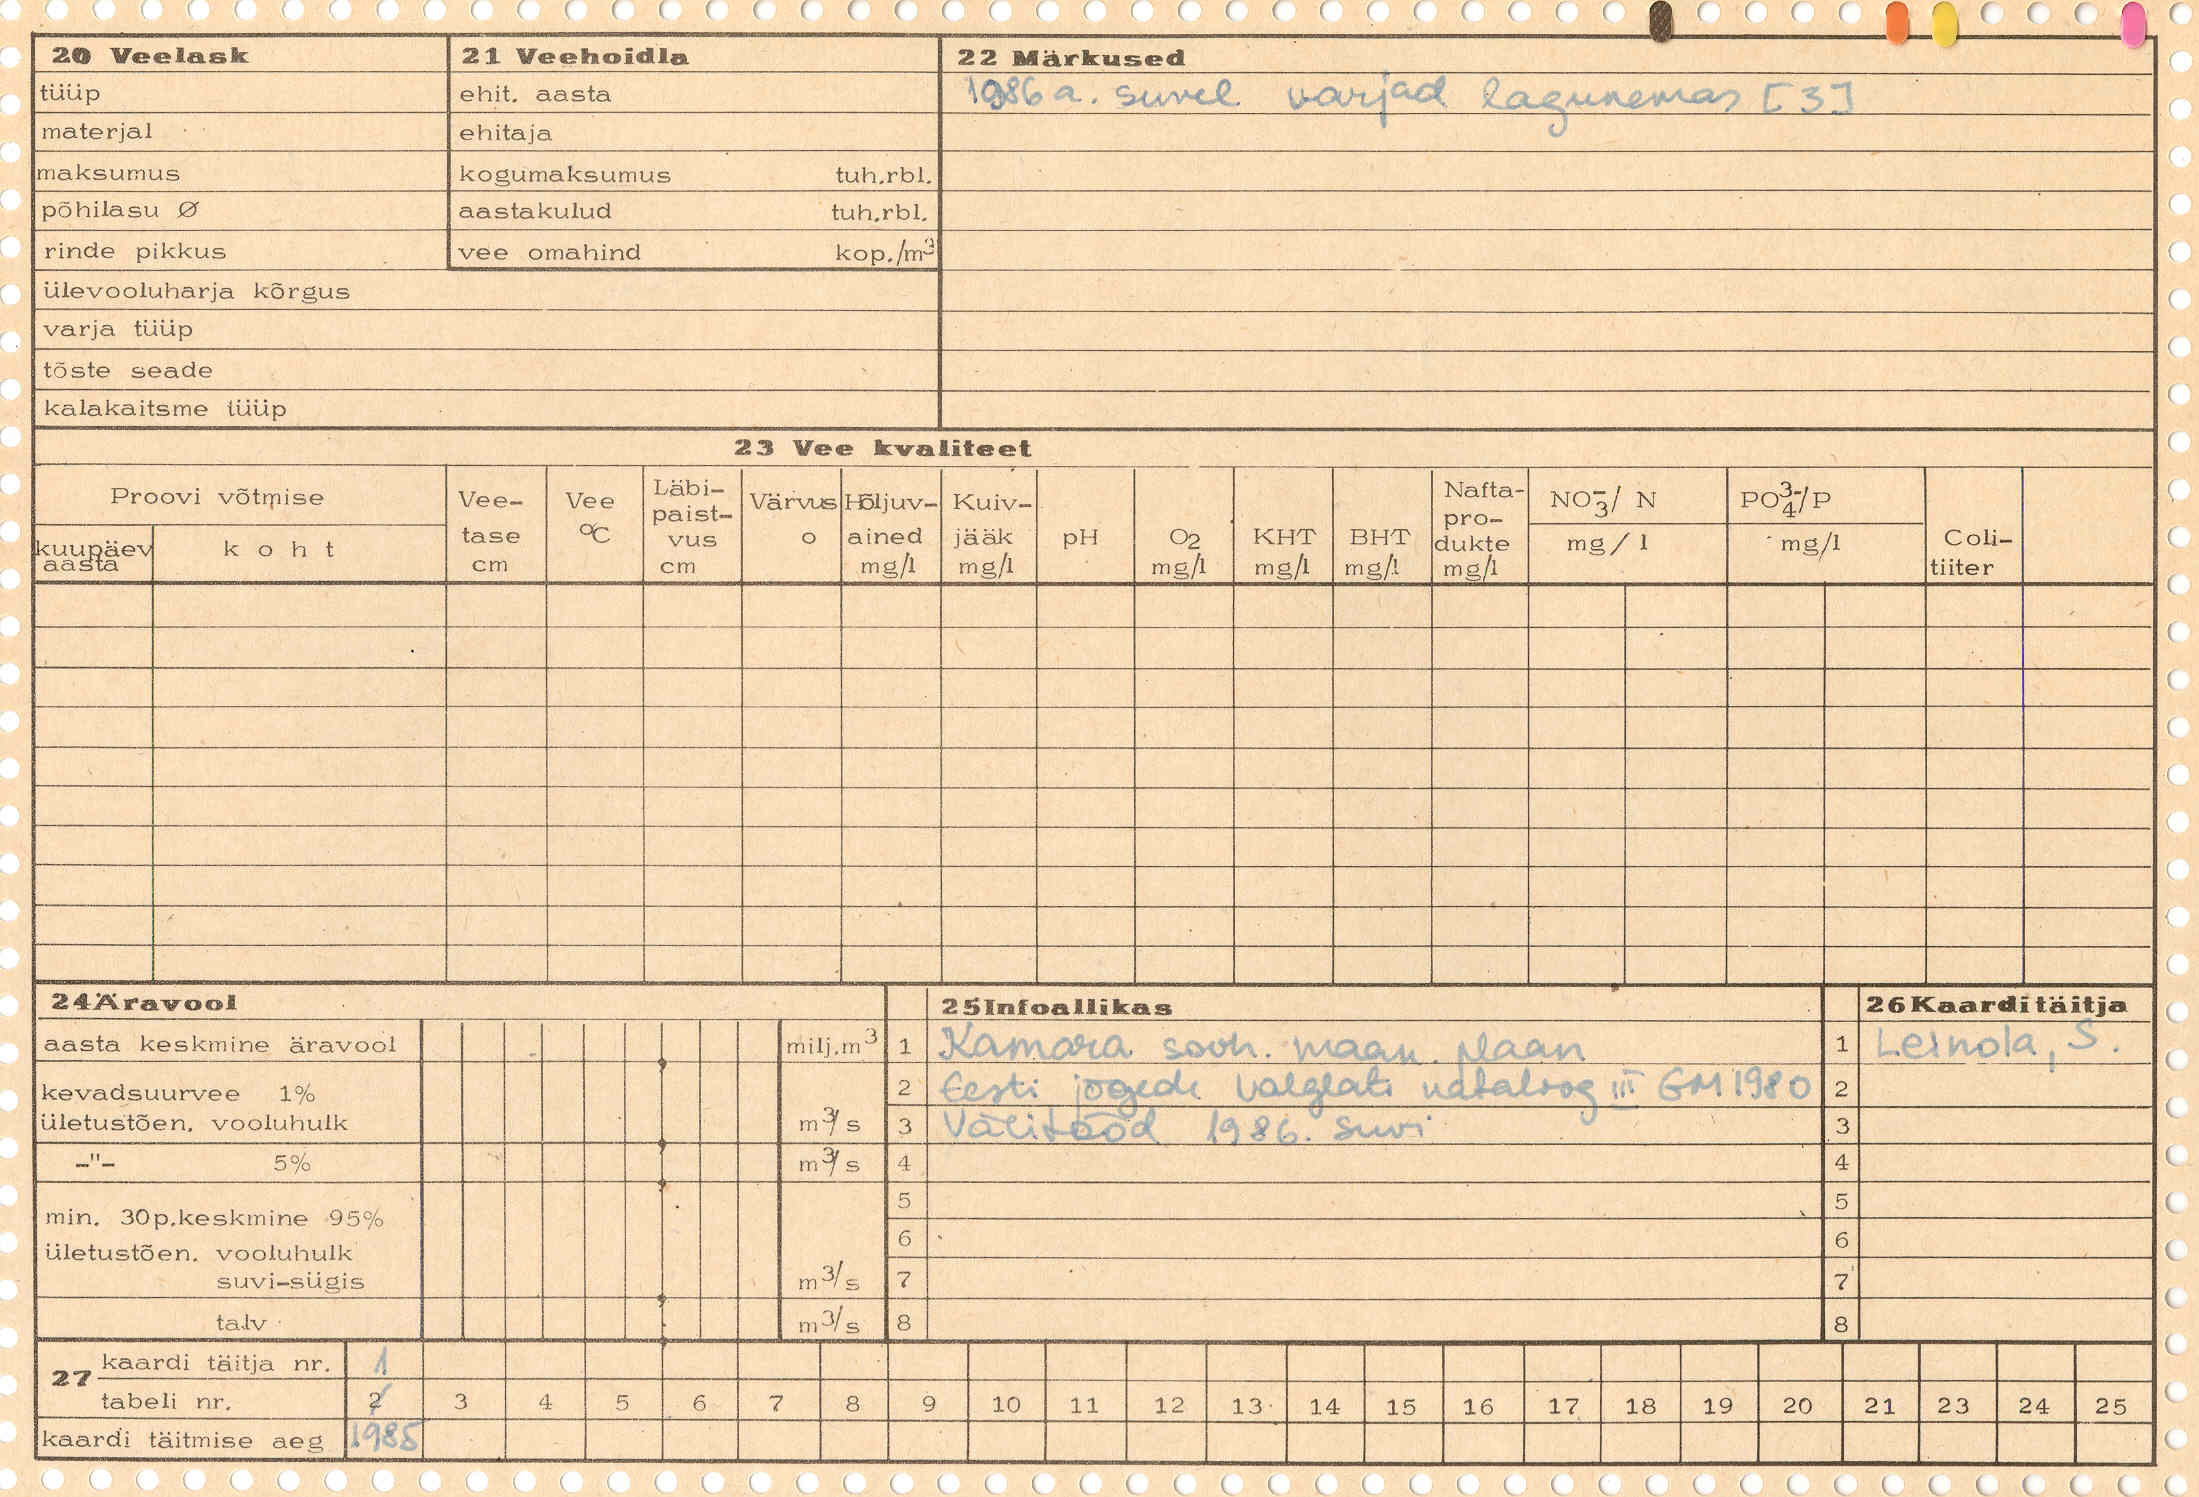 20 Veelask
tüüp
materjal
maksumus
põhilasu Ø
rinde pikkus
ülevooluharja kõrgus
varja tüüp
tõste seade
kalakaitsme tüüp
21 Veehoidla
ehit. aasta
ehitaja
kogumaksumus tuh.rbl.
aastakulud tuh.rbl.
vee omahind kop./m³
22 Märkused
1986 a. suvel varjad lagunemas [3]
23 Vee kvaliteet
Proovi võtmise
kuupäev
aasta
koht
Vee-
tase
cm
Vee
°C
Läbi-
paist-
vus
cm
Värvus
o
Hõljuv-
ained
mg/l
Kuiv-
jääk
mg/l
pH
O2
mg/l
KHT
mg/l
BHT
mg/l
Nafta-
pro-
dukte
mg/l
NO₃⁻/ N
mg/l
PO₄³⁻/P
mg/l
Coli-
tiiter
24 Äravool
aasta keskmine äravool milj.m³
kevadsuurvee 1%
ületustõen. vooluhulk m³/s
-"- 5% m³/s
min. 30p.keskmine 95%
ületustõen. vooluhulk
suvi-sügis m³/s
talv m³/s
25 Infoallikas
1 Kamara sovh. maau. plaan
2 Eesti jõgede valglate kataloog III GM 1980
3 Välitööd 1986. suvi
4
5
6
7
8
26 Kaarditäitja
1 Leinola, S.
2
3
4
5
6
7
8
27
kaardi täitja nr. 1
tabeli nr. 2 3 4 5 6 7 8 9 10 11 12 13 14 15 16 17 18 19 20 21 23 24 25
kaardi täitmise aeg 1985